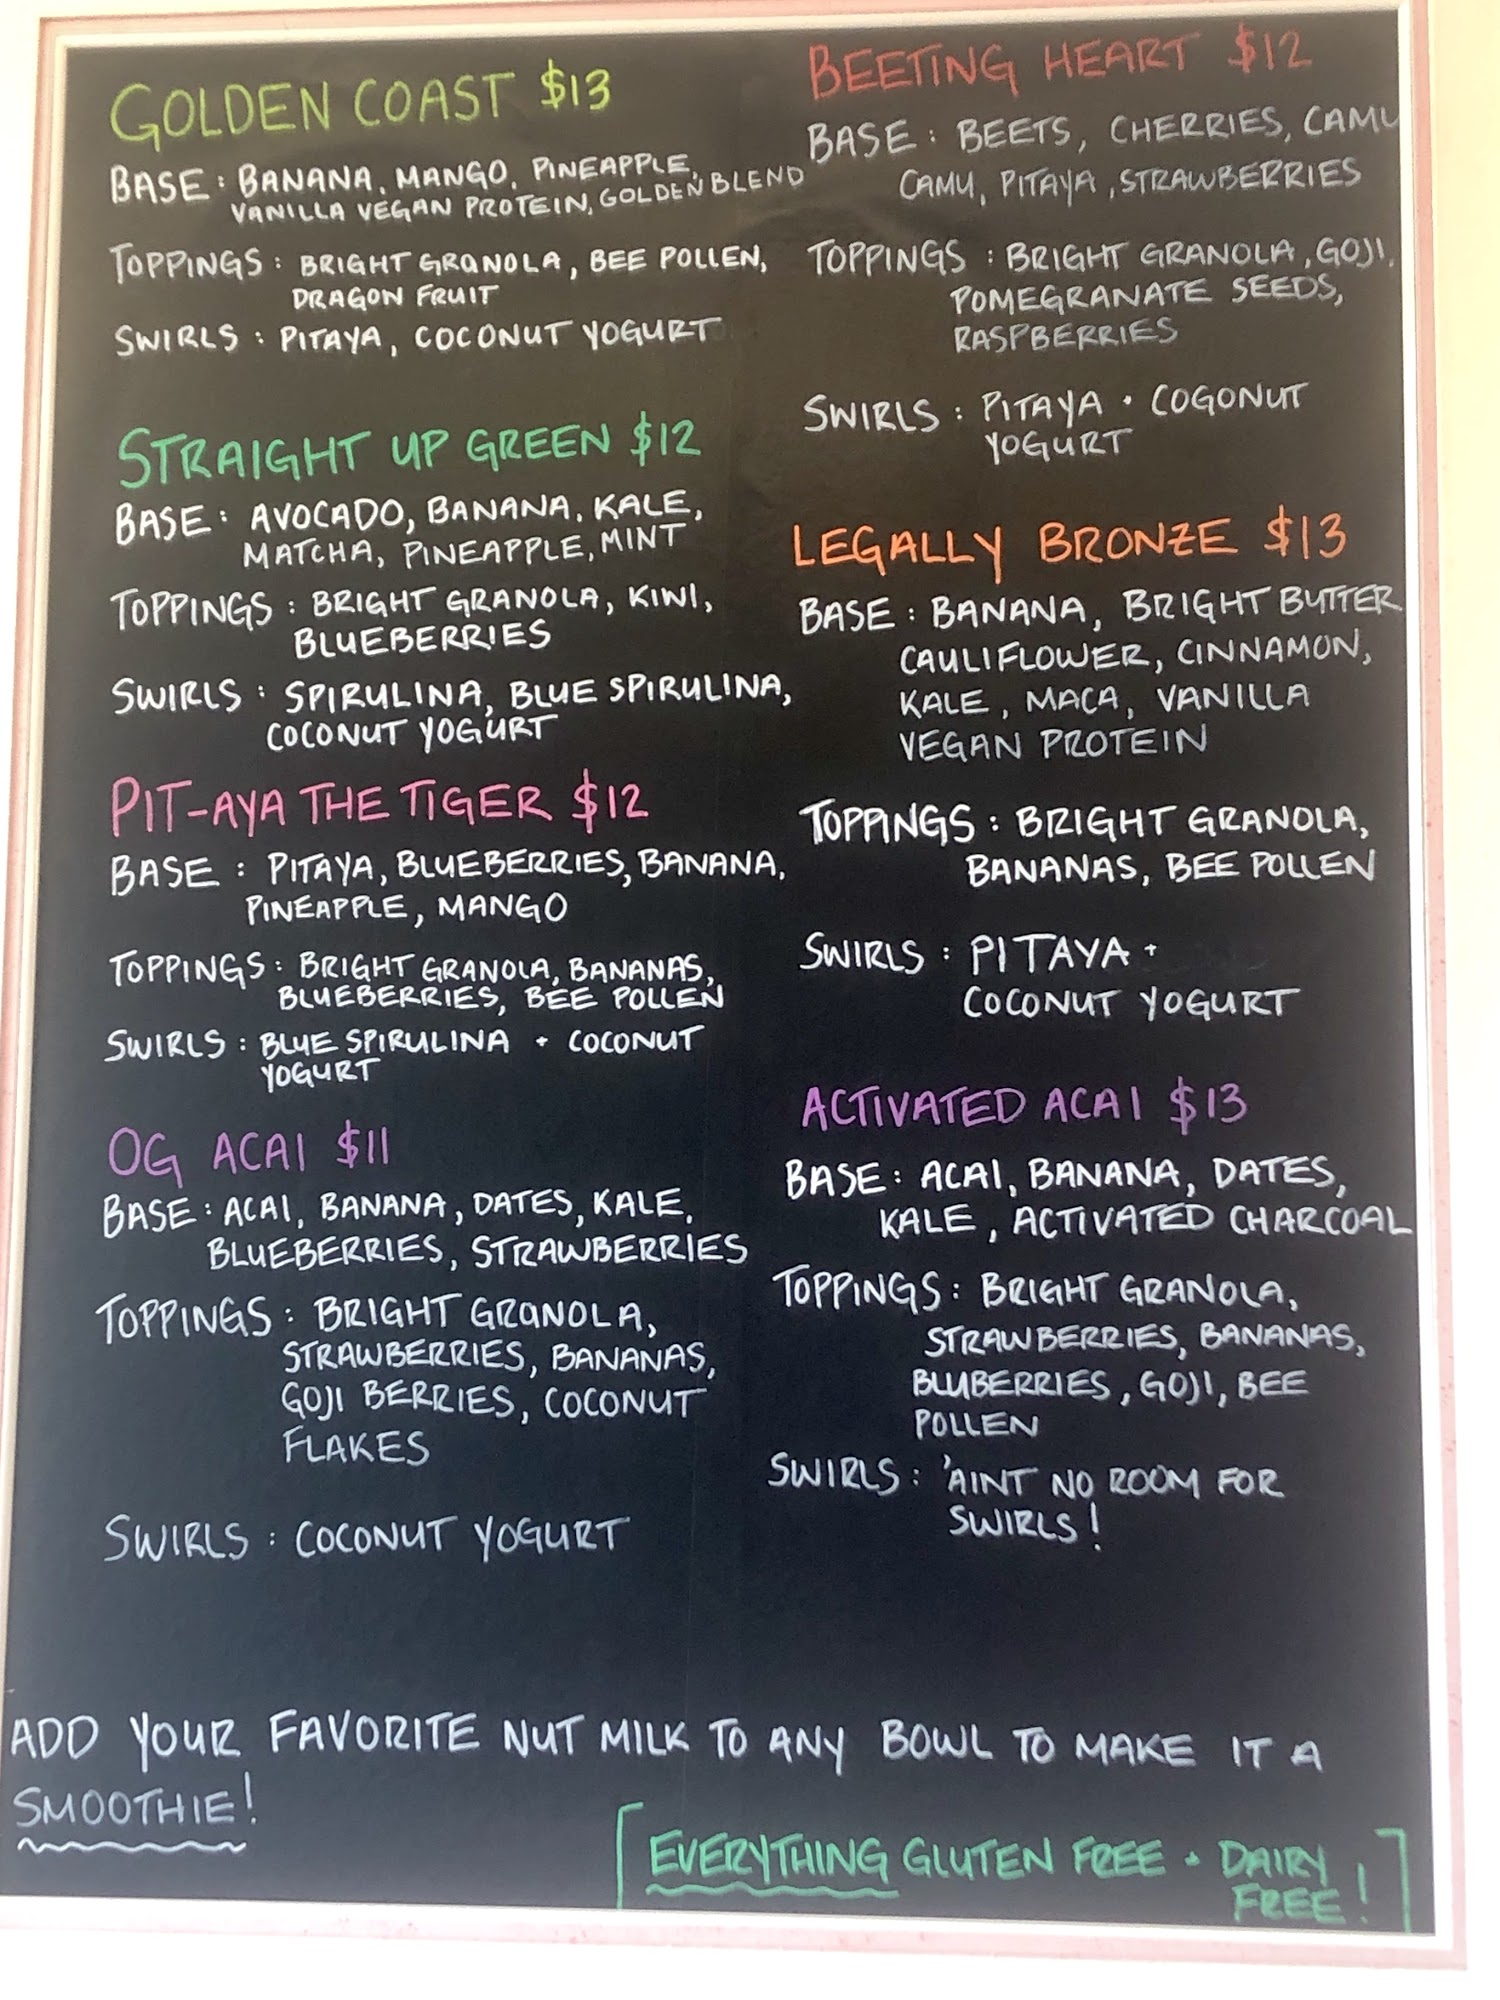 GOLDEN COAST $13
BASE: BANANA, MANGO, PINEAPPLE,
VANILLA VEGAN PROTEIN, GOLDEN BLEND
TOPPINGS: BRIGHT GRANOLA, BEE POLLEN,
DRAGON FRUIT
SWIRLS: PITAYA, COCONUT YOGURT
STRAIGHT UP GREEN $12
BASE: AVOCADO, BANANA, KALE,
MATCHA, PINEAPPLE, MINT
TOPPINGS: BRIGHT GRANOLA, KIWI,
BLUEBERRIES
SWIRLS: SPIRULINA, BLUE SPIRULINA,
COCONUT YOGURT
PIT-AYA THE TIGER $12
BASE: PITAYA, BLUEBERRIES, BANANA,
PINEAPPLE, MANGO
TOPPINGS: BRIGHT GRANOLA, BANANAS,
BLUEBERRIES, BEE POLLEN
SWIRLS: BLUE SPIRULINA + COCONUT
YOGURT
OG ACAI $11
BASE: ACAI, BANANA, DATES, KALE,
BLUEBERRIES, STRAWBERRIES
TOPPINGS: BRIGHT GRANOLA,
STRAWBERRIES, BANANAS,
GOJI BERRIES, COCONUT
FLAKES
SWIRLS: COCONUT YOGURT
BEETING HEART $12
BASE: BEETS, CHERRIES, CAMU
CAMU, PITAYA, STRAWBERRIES
TOPPINGS: BRIGHT GRANOLA, GOJI,
POMEGRANATE SEEDS,
RASPBERRIES
SWIRLS: PITAYA + COGONUT
YOGURT
LEGALLY BRONZE $13
BASE: BANANA, BRIGHT BUTTER
CAULIFLOWER, CINNAMON,
KALE, MACA, VANILLA
VEGAN PROTEIN
TOPPINGS: BRIGHT GRANOLA,
BANANAS, BEE POLLEN
SWIRLS: PITAYA +
COCONUT YOGURT
ACTIVATED ACAI $13
BASE: ACAI, BANANA, DATES,
KALE, ACTIVATED CHARCOAL
TOPPINGS: BRIGHT GRANOLA,
STRAWBERRIES, BANANAS,
BLUBERRIES, GOJI, BEE
POLLEN
SWIRLS: 'AINT NO ROOM FOR
SWIRLS!
ADD YOUR FAVORITE NUT MILK TO ANY BOWL TO MAKE IT A
SMOOTHIE!
EVERYTHING GLUTEN FREE + DAIRY
FREE!